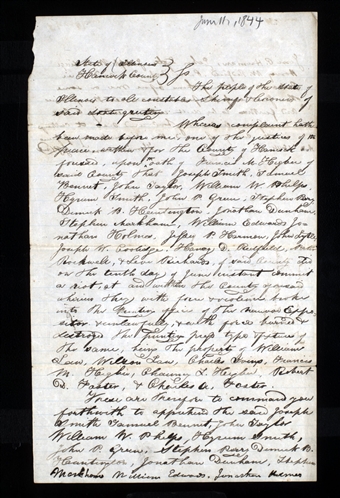 June 11, 1844
State of Illinois
Hancock County } ss
The people of the State of
Illinois to all constables Sheriffs & Coroners of
said State greeting
Whereas complaint hath
been made before me, one of the justices of the
peace within & for the County of Hancock
upon oath of Francis M. Higbee of
said County that Joseph Smith, Samuel
Bennet, John Taylor, William W. Phelps,
Hyrum Smith, John P. Green, Stephen Perry
Dimick B. Huntington, Jonathan Dunham,
Stephen Markham, William Edwards, Jo
nathan Holmes, Jesse P. Harmon, John Lytle,
Joseph W. Coolidge, Harvey D. Redfield,
Rockwell, & Levi Richards, of said County
on the tenth day of June instant commit
a riot, at and within the County aforesaid
wherein they with force & violence broke
into the Printing office of the Nauvoo Expo
sitor & unlawfully & with force burned &
destroyed the printing press type & fixtures of
the same, being the property of William
Law, Wilson Law, Charles Ivins, Francis
M. Higbee, Chauncy L. Higbee, Robert
D. Foster, & Charles A. Foster.
These are therefore to command you
forthwith to apprehend the said Joseph
Smith Samuel Bennet, John Taylor
William W. Phelps, Hyrum Smith,
John P. Green, Stephen Perry Dimick B.
Huntington, Jonathan Dunham, Stephen
Markham William Edwards, Jonathan Holmes